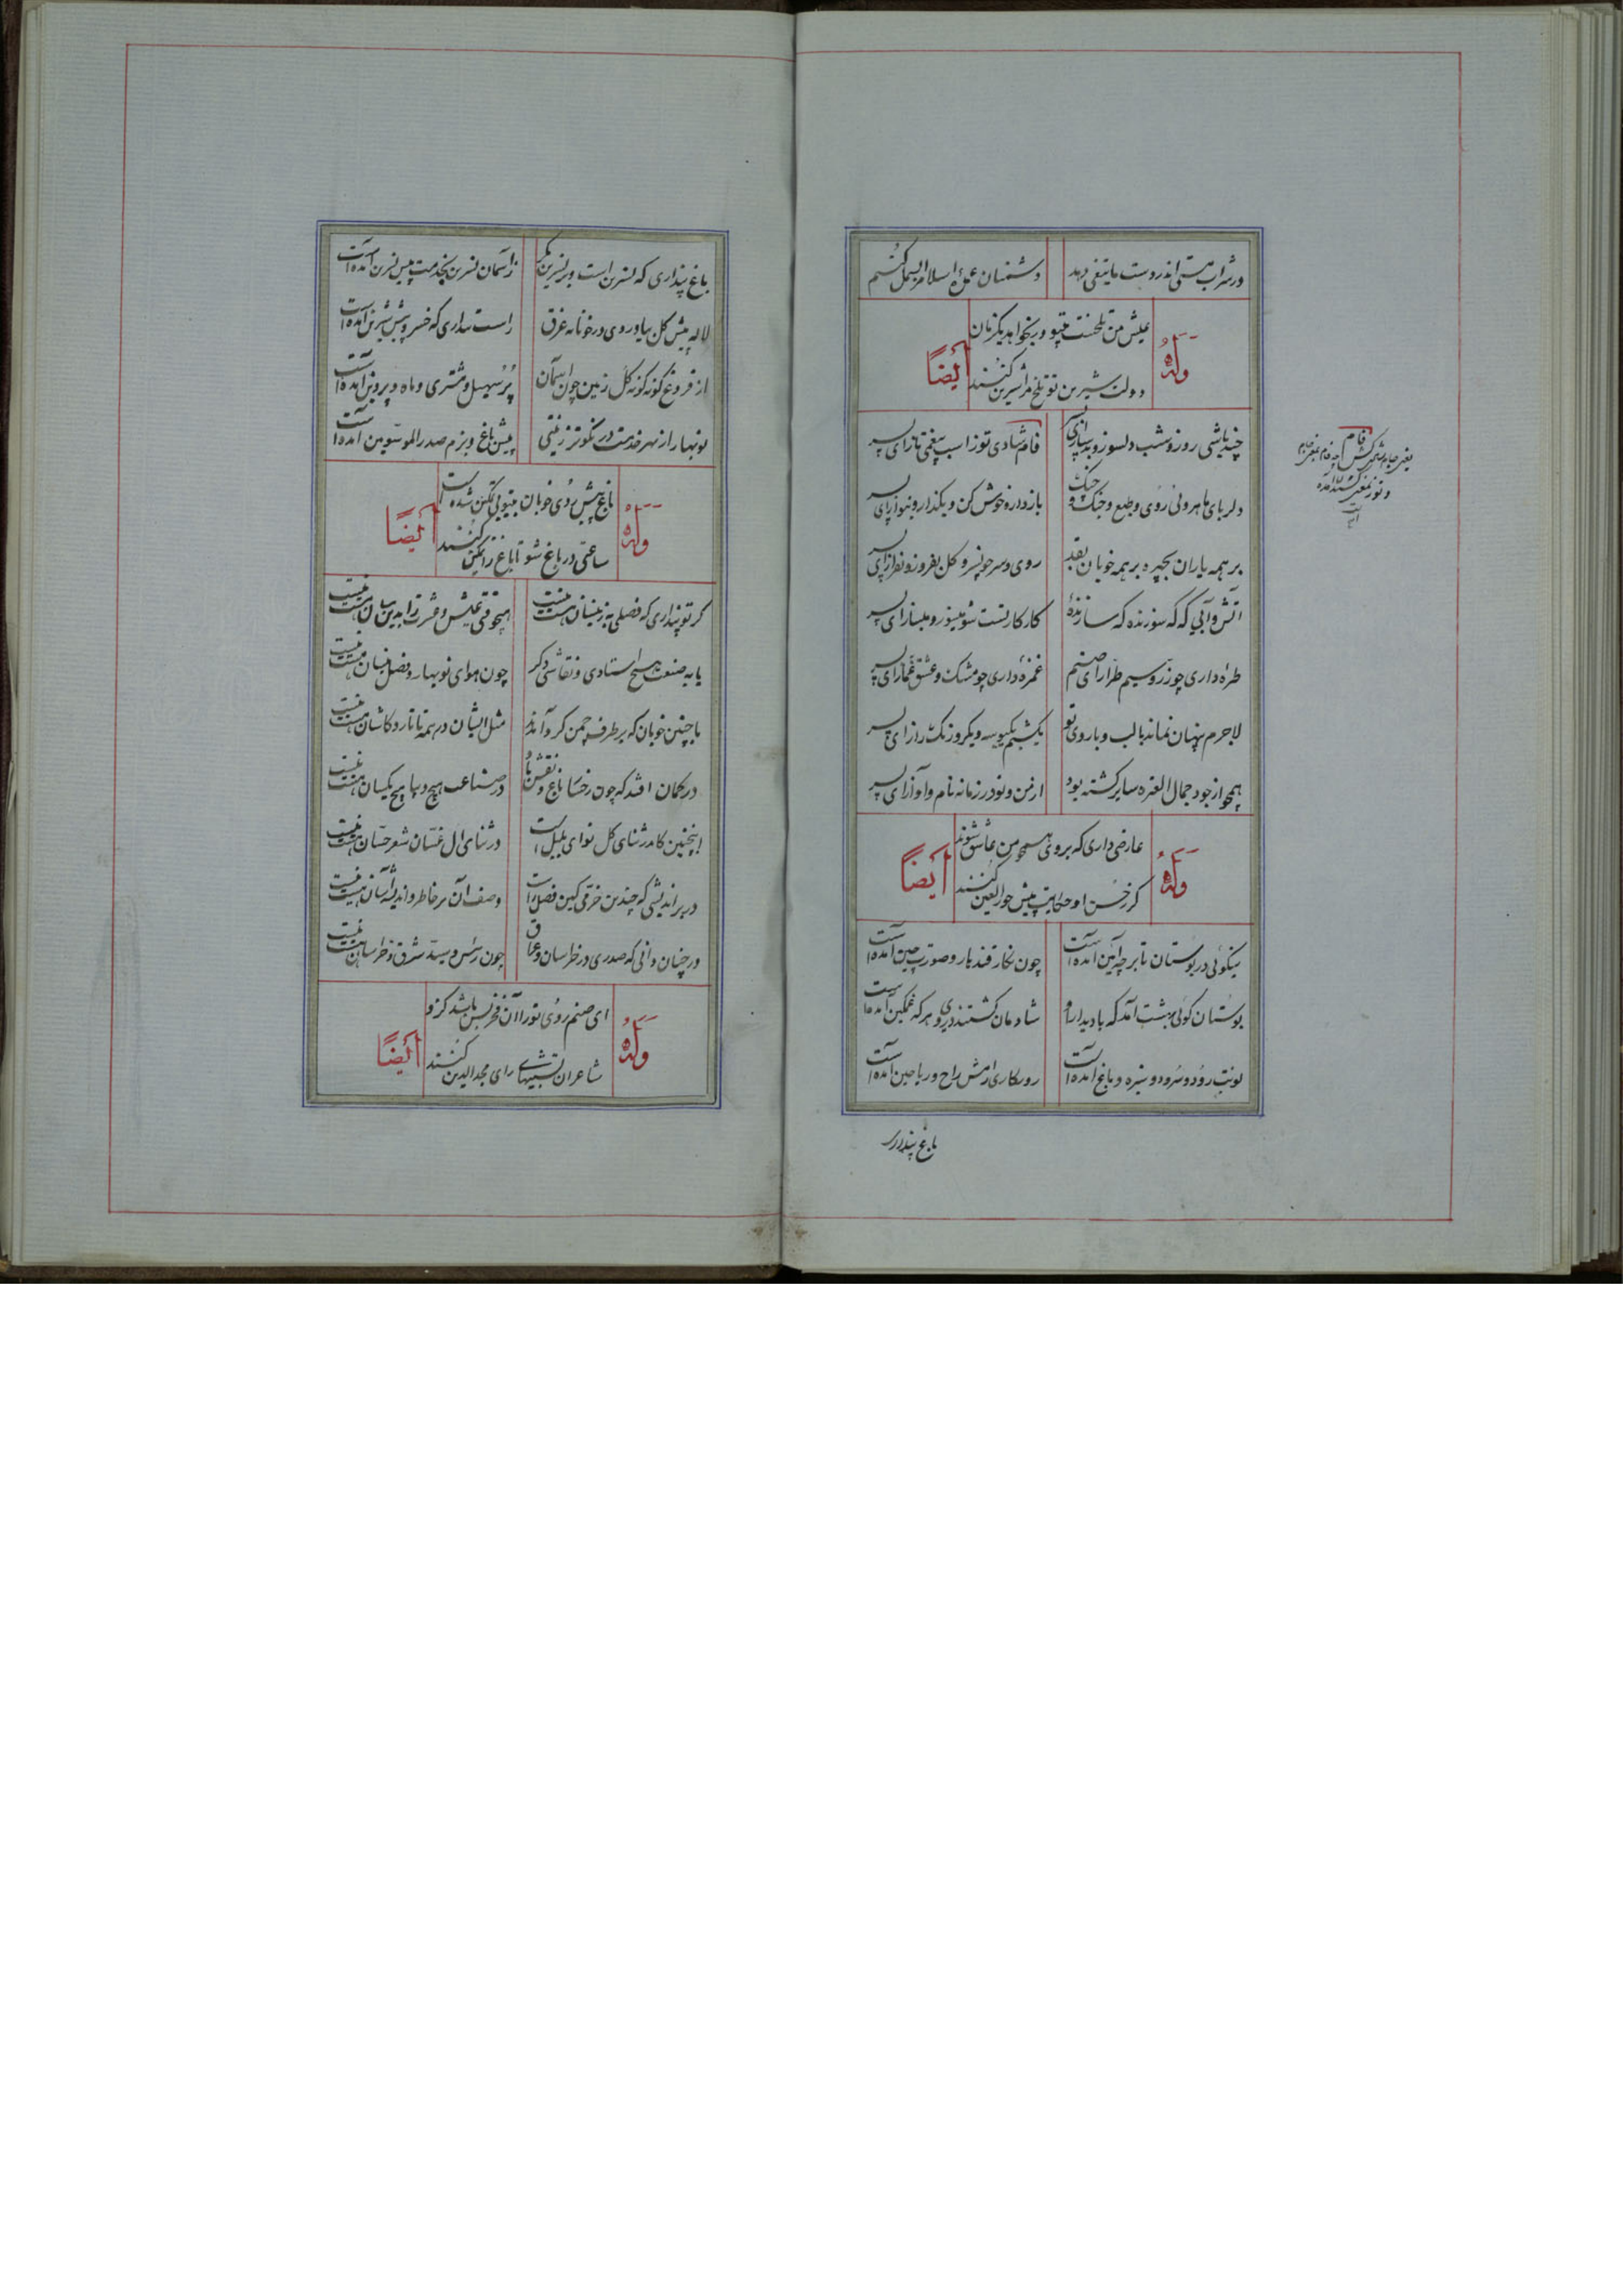 ور شراب هستی اندر دست ما تیغی دهد
دشمنان عملهٔ اسلام را بسمل کنیم
وله
عیش من تلخست بیتو ور بخواهد یکزمان
دولت شیرین تو تلخ مرا شیرین کنند
ایضاً
چند باشی روز و شب دلسوز و بدساز ای پسر
فام شادی توز اسب بیغمی تاز ای پسر
دلربای ماهروئی روی و طبع و جنگ و چنگ
باز دار و خوش کن و بگذار و بنواز ای پسر
بر همه یاران بچهره بر همه خوبان بقد
روی و سر چون سرو و گل بفروز و بفراز ای پسر
آتش و آبی که گه سوزنده گه سازندهٔ
کار کار تست شو میسوز و میساز ای پسر
طره داری چو زر و سیم طرار ای صنم
غمزهٔ داری چو مشک و عشق غماز ای پسر
لاجرم پنهان نماند با لب و با روی تو
یکشبم یکبوسه و یکروز یک راز ای پسر
همچو از جود جمال العتره سایر گشته بود
از من و تو در زمانه نام و آواز ای پسر
وله
عارضی داری که بر وی همچو من عاشق شوند
گر ز حسن او حکایت پیش حور العین کنند
ایضاً
نیکوئی در بوستان تا بر چه آئین آمده است
چون نگار قندهار و صورت چین آمده است
بوستان گوئی بهشت آمد که با دیدار او
شادمان گشتند در وی هر که غمگین آمده است
نوبت رود و سرود و سبزه و باغ آمده است
روزگار رامش راح و ریاحین آمده است
باغ پنداری
باغ پنداری که نسرین است و بر نسرین مگر
ز آسمان نسرین بخدمت پیش نسرین آمده است
لاله پیش گل بیاد روی در خونابه غرق
راست پنداری که خسرو پیش شیرین آمده است
از فروغ گونه گونه گل زمین چون آسمان
پر سهیل و مشتری و ماه و پروین آمده است
نوبهار از بهر خدمت در نکوتر زینتی
پیش باغ و بزم صدر الموسویین آمده است
وله
باغ پیش روی خوبان بیتو بی تمکین شده است
ساعتی در باغ شو تا باغ را تمکین کنند
ایضاً
گر تو پنداری که فصلی به زنیسان هست نیست
همچو وقتی عیش و عشرت را بدین سان هست نیست
یا به صنعت هیچ استادی و نقاشی دگر
چون هوای نوبهار و فصل نیسان هست نیست
با چنین خوبان که بر طرف چمن گرد آمدند
مثل ایشان در همه تاتار و کاشان هست نیست
در گمان افتد که چون رخسار باغ و نقش او
در صناعت هیچ دیبا هیچ یکسان هست نیست
اینچنین کاندر ثنای گل نوای بلبل است
در ثنای آل غسان شعر حسان هست نیست
ور براندیشی که چندین خرمی کین فصل راست
وصف آن بر خاطر و اندیشه آسان هست نیست
ور چنان دانی که صدری در خراسان و عراق
چون رئیس و سید شرق و خراسان هست نیست
وله
ای صنم روی تو را آن فخر بس باشد کزو
شاعران تشبیهای رای مجد الدین کنند
ایضاً